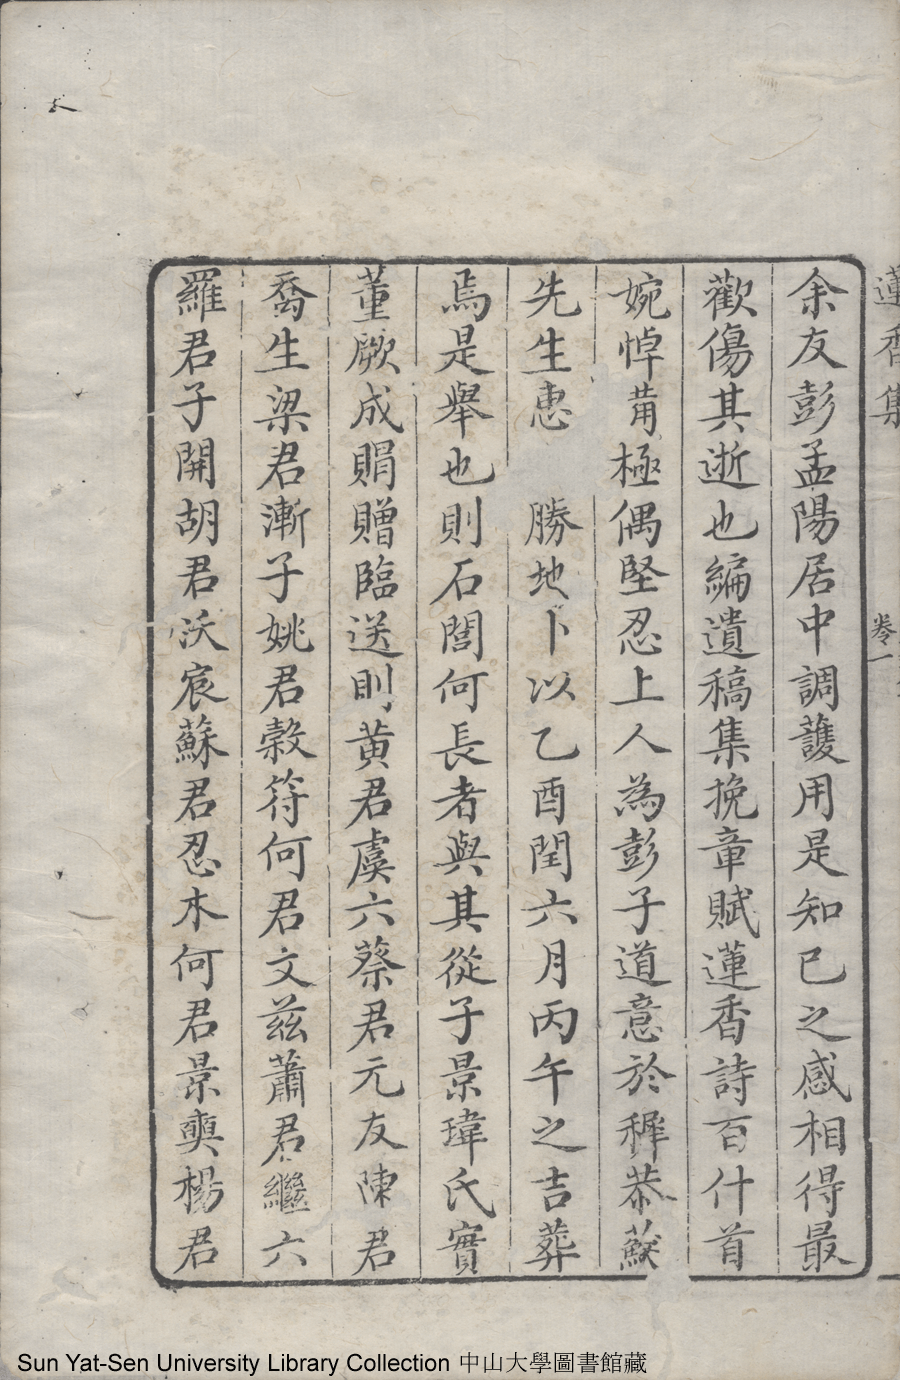 蓮香集
卷一
余友彭孟陽居中調䕶用是知已之感相得最
歡傷其逝也編遺稿集挽章賦蓮香詩百什首
婉悼莆極偶堅忍上人為彭子道意於穉恭蘇
先生惠 勝地卜以乙酉閏六月丙午之吉葬
焉是舉也則石閭何長者與其從子景瑋氏實
董厥成賻贈臨送則黄君虞六蔡君元友陳君
喬生梁君漸子姚君穀符何君文兹蕭君繼六
羅君子開胡君沃宸蘇君忍木何君景奭楊君
Sun Yat-Sen University Library Collection 中山大學圖書館藏